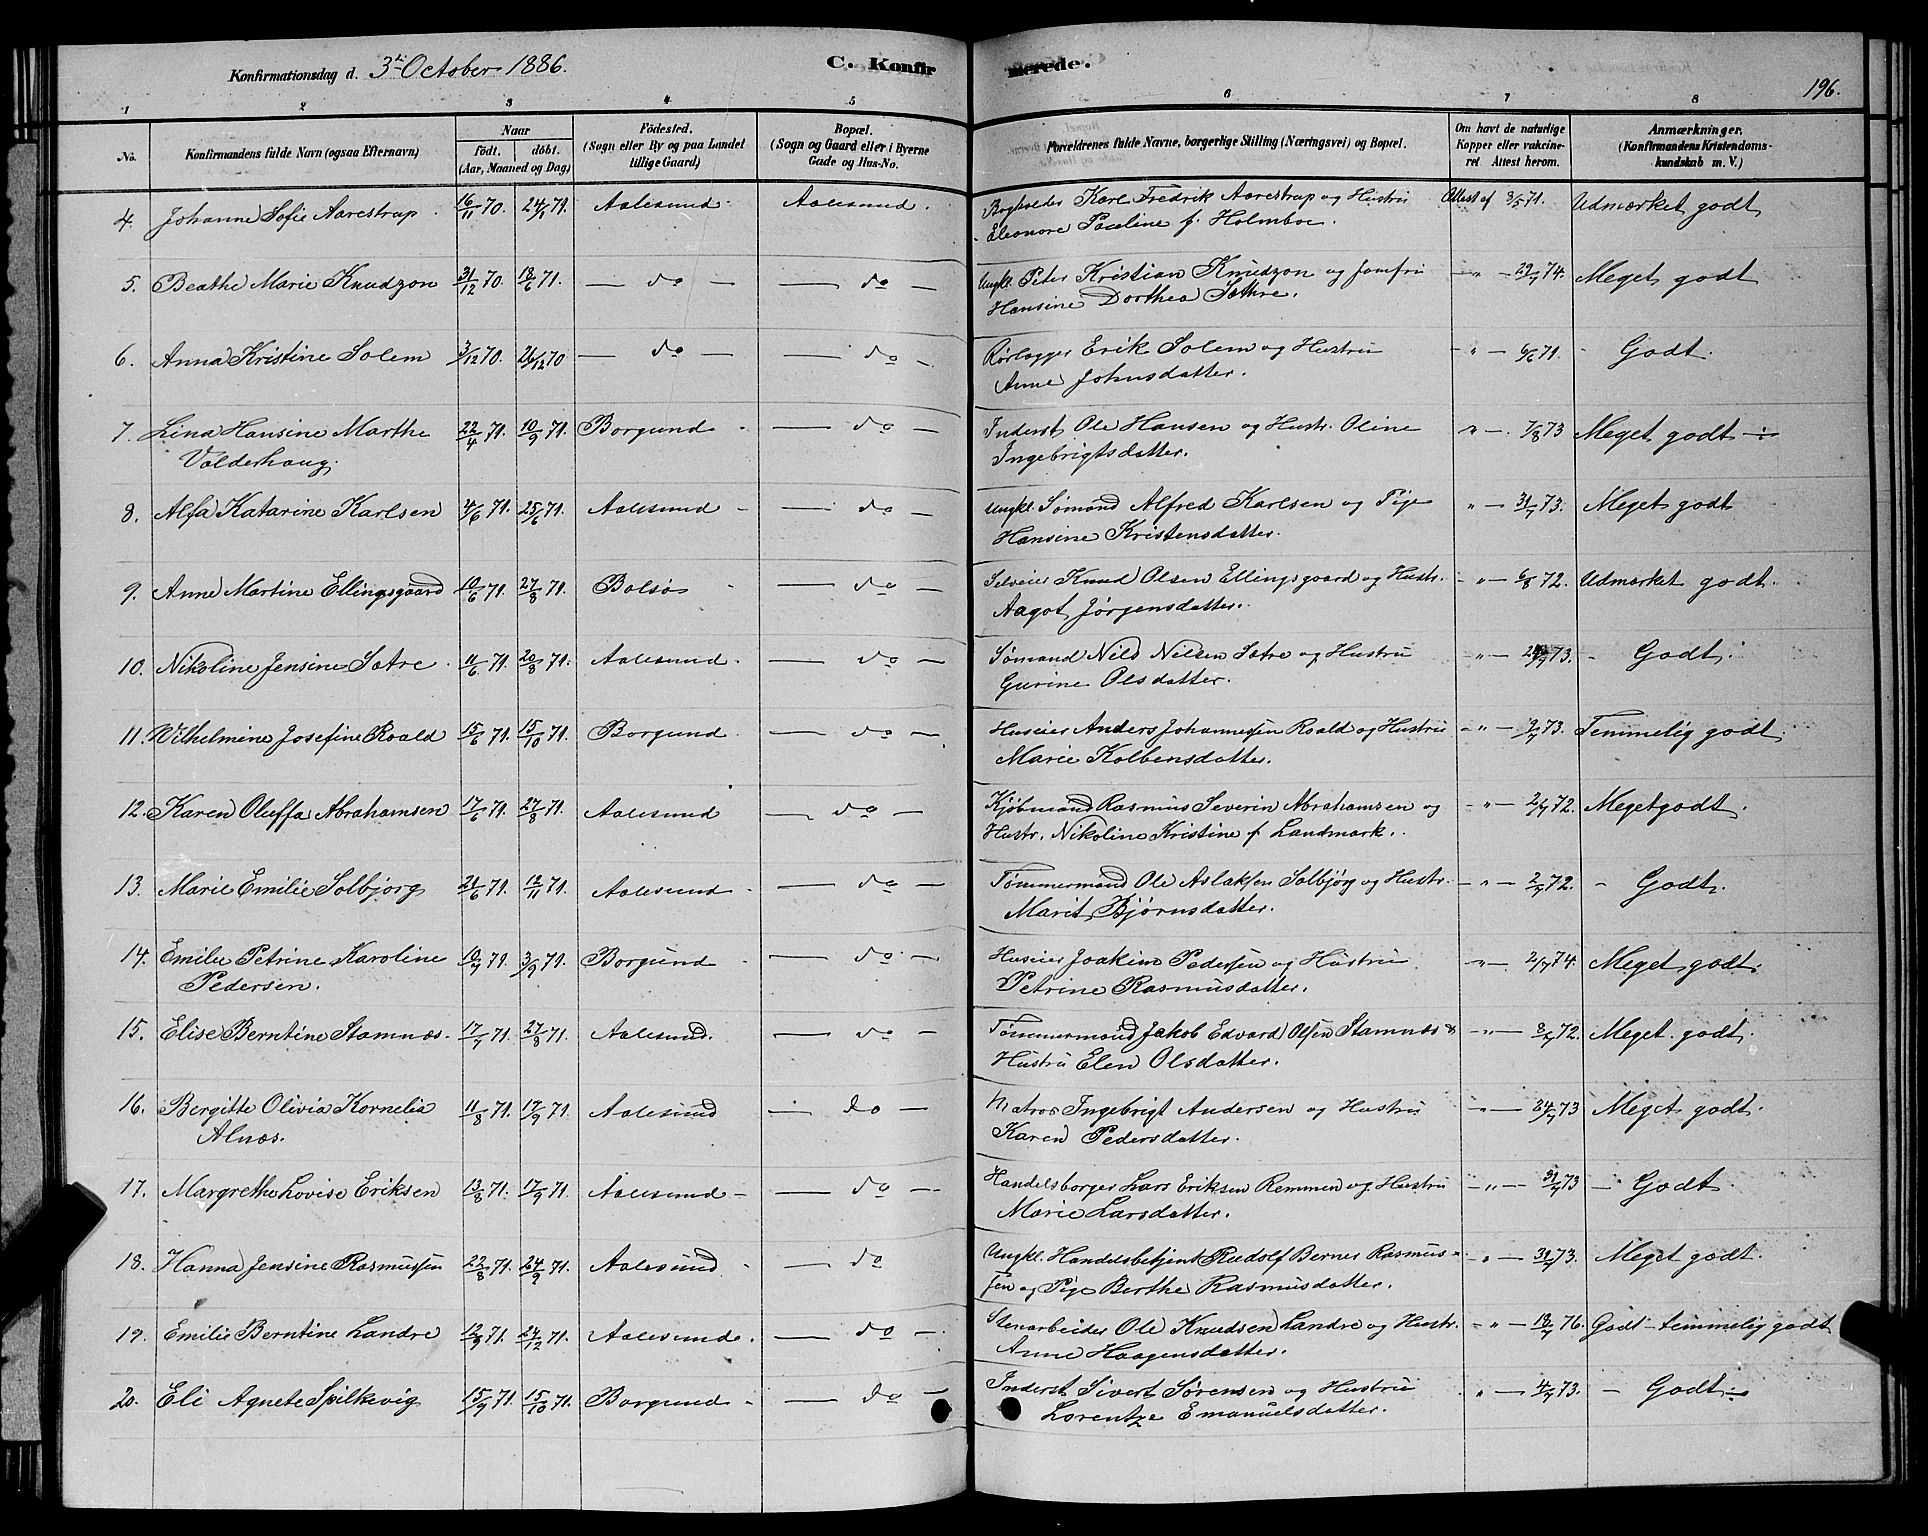 Konfirmationsdag d. 3die October 1886. C. Konfirmerede. 196.
1 2 3 4 5 6 7 8
No. Konfirmandens fulde Navn (ogsaa Efternavn) Naar født. døbt. (Aar, Maaned og Dag) Fødested. (Sogn eller By og paa Landet tillige Gaard) Bopæl. (Sogn og Gaard eller i Byerne Gade og Hus-No. Forældrenes fulde Navne, borgerlige Stilling (Næringsvei) og Bopæl. Om havt de naturlige Kopper eller vakcineret. Attest herom. Anmærkninger. (Konfirmandens Kristendomskundskab m. V.)
4. Johanne Sofie Aarestrup. 16/11 70. 24/1 71. Aalesund. Aalesund. Karl Fredrik Aarestrup og Hustru Attest af 3/5 71. Udmærket godt
Eleonore Pauline f. Holmboe.
5. Beathe Marie Knudzon 31/12 70. 18/6 71. — do — — do — Ungkl. Peter Kristian Knudzon og Jomfru — " — 29/7 74. Meget godt
Hansine Dorthea Sæthre.
6. Anna Kristine Solem 3/12 70. 26/12 70 — do — — do — Rørlægger Erik Solem og Hustru — " — 6/6 71. - Godt.
Anne Johnsdatter.
7. Lina Hansine Marthe 22/4 71. 10/9 71. Borgund — do — Inderst Ole Hansen og Hustr. Oline " — 7/8 73 Meget godt
Valderhaug. Ingebrigtsdatter.
8. Alfa Katarine Karlsen 4/6 71. 25/6 71. Aalesund — do — Ungkl. Sømand Alfred Karlsen og Pige " — 31/7 73. Meget godt
Hansine Kristensdatter.
9. Anne Martine Ellingsgaard 10/6 71. 27/8 71. Bolsø — do — Selveier Knud Olsen Ellingsgaard og Hustr. - " — 6/8 72. Udmærket godt.
Aagot Jørgensdatter.
10. Nikoline Jensine Sætre. 11/6 71. 20/8 71. Aalesund. — do — Sømand Nils Nilsen Sætre og Hustru " — 73. - Godt.
Gurine Olsdatter.
11. Wilhelmine Josefine Roald 15/6 71. 15/10 71. Borgund. — do — Huseier Anders Johannessen Roald og Hustru - " — 2/7 73. Temmelig godt.
Marie Kolbensdatter.
12. Karen Oluffa Abrahamsen 17/6 71. 27/8 71. Aalesund — do — Kjøbmand Rasmus Severin Abrahamsen og - " — 2/7 72. Meget godt.
Hustr. Nikoline Kristine f. Landmark.
13. Marie Emilie Solbjørg 21/6 71. 12/11 71. Aalesund — do — Tømmermand Ole Aslaksen Solbjørg og Hustr. — " — 2/7 72. - Godt.
Marit Bjørnsdatter.
14. Emilie Petrine Karoline 10/7 71. 3/9 71. Borgund — do — Huseier Joakim Pedersen og Hustru " —. 2/7 74. Meget godt.
Pedersen. Petrine Rasmusdatter.
15. Elise Berntine Stamnæs. 17/7 71. 27/8 71. Aalesund. — do — Tømmermand Jakob Edvard Olsen Stamnæs & - " — 3/7 72. Meget godt.
Hustru Elen Olsdatter.
16. Bergitte Olivia Kornelia 11/8 71. 17/9 71. Aalesund — do — Matros Ingebrigt Andersen og Hustru " — 24/7 73 Meget godt.
Alnæs. Karen Pedersdatter.
17. Margrethe Lovise Eriksen 13/8 71. 17/9 71. Aalesund — — do — Handelsborger Lars Eriksen Remmen og Hustru — " — 31/7 73 — Godt.
Marie Larsdatter.
18. Hanna Jensine Rasmussen 22/8 71. 24/9 71. Aalesund. — do Ungkl. Handelsbetjent Rudolf Bernes Rasmus- " — 31/7 73. Meget godt.
sen og Pige Berthe Rasmusdatter.
19. Emilie Berntine Landre 12/9 71. 24/12 71. Aalesund. — do — Stenarbeider Ole Knudsen Landre og Hustr. - " — 18/7 76. Godt - temmelig godt
Anne Haagensdatter.
20. Eli Agnete Spilkevig 15/9 71. 15/10 71. Borgund. — do — Inderst Sivert Sørensen og Hustru " — 4/7 73. - Godt
Lorentze Emanuelsdatter.